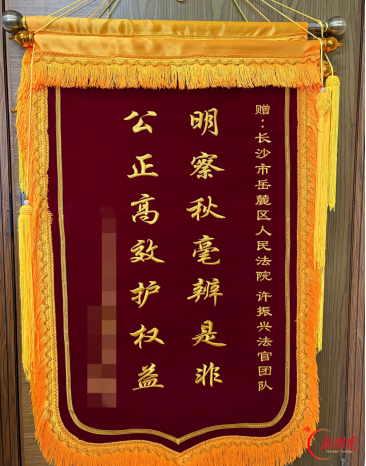 赠：长沙市岳麓区人民法院 许振兴法官团队
明察秋毫辨是非
公正高效护权益